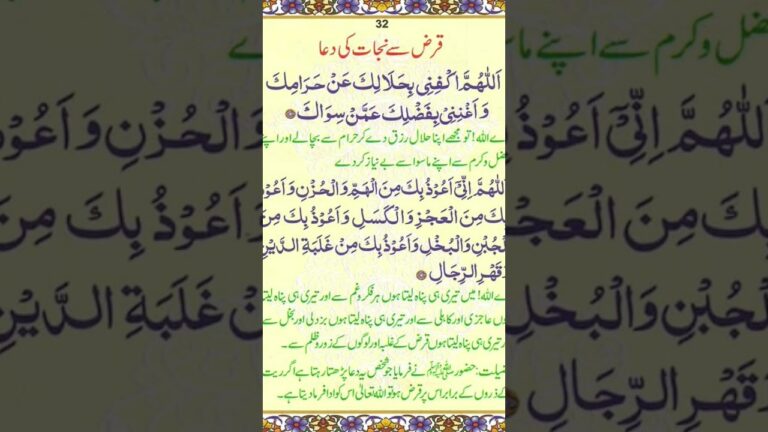 32
قرض سے نجات کی دعا
اَللّٰهُمَّ اكْفِنِیْ بِحَلَالِكَ عَنْ حَرَامِكَ
وَ اَغْنِنِیْ بِفَضْلِكَ عَمَّنْ سِوَاكَ
ے اللہ! تو مجھے اپنا حلال رزق دے کر حرام سے بچا لے اور اپنے
ضل و کرم سے اپنے ماسوا سے بے نیاز کر دے
اَللّٰهُمَّ اِنِّیْٓ اَعُوْذُ بِكَ مِنَ الْهَمِّ وَ الْحُزْنِ وَ اَعُوْذُ
بِكَ مِنَ الْعَجْزِ وَ الْكَسَلِ وَ اَعُوْذُ بِكَ مِنَ
لْجُبْنِ وَالْبُخْلِ وَ اَعُوْذُ بِكَ مِنْ غَلَبَةِ الدَّيْنِ
وَ قَهْرِ الرِّجَالِ
ے اللہ! میں تیری ہی پناہ لیتا ہوں ہر فکر و غم سے اور تیری ہی پناہ لیتا
وں عاجزی اور کاہلی سے اور تیری ہی پناہ لیتا ہوں بزدلی اور بخل سے
ور تیری ہی پناہ لیتا ہوں قرض کے غلبہ اور لوگوں کے زور و ظلم سے۔
ضیلت: حضور ﷺ نے فرمایا جو شخص یہ دعا پڑھتا رہتا ہے اگر ریت
کے ذروں کے برابر اس پر قرض ہو تو اللہ تعالیٰ اس کو ادا فرما دیتا ہے۔